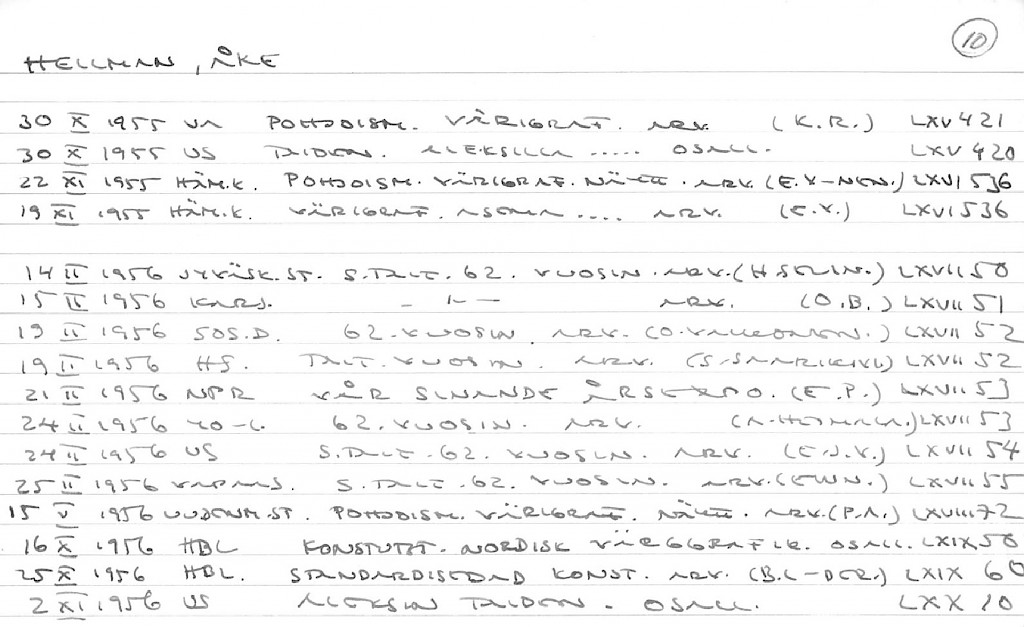 10
HELLMAN, ÅKE
30 X 1955 VA POHJOISM. VÄRIGRAF. ARV. (K.R.) LXV 421
30 X 1955 US TAIDEN. ALEKSILLA ..... OSALL. LXV 420
22 XI 1955 HÄM.K. POHJOISM. VÄRIGRAF. NÄYTT. ARV. (E.Y-NEN.) LXVI 536
19 XI 1955 HÄM.K. VÄRIGRAF. ASEMA .... ARV. (E.Y.) LXVI 536
14 II 1956 JYVÄSK.ST. S.TAIT. 62. VUOSIN. ARV. (H SELIN.) LXVII 50
15 II 1956 KARJ. - " - ARV. (O.B.) LXVII 51
19 II 1956 SOS.D. 62. VUOSIN. ARV. (O.VALKONEN.) LXVII 52
19 II 1956 HS. TAIT. VUOSIN. ARV. (S.SAARIKIVI) LXVII 52
21 II 1956 NPR VÅR SLNANDE ÅRSEXPO. (E.P.) LXVII 53
24 II 1956 YO-L. 62. VUOSIN. ARV. LXVII 53
24 II 1956 US S.TAIT. 62. VUOSIN. ARV. (E.J.V.) LXVII 54
25 II 1956 VAPAAS. S.TAIT. 62. VUOSIN. ARV. (EWN.) LXVII 55
15 V 1956 UUDENM.ST. POHJOISM. VÄRIGRAF. NÄYTT. ARV. (P.A.) LXVIII 72
16 X 1956 HBL KONSTUTST. NORDISK FÄRGGRAFIK. OSALL. LXIX 50
25 X 1956 HBL. STANDARDISERAD KONST. ARV. (B.L-DER.) LXIX 60
2 XI 1956 US ALEKSIN TAIDEN. OSALL. LXX 10